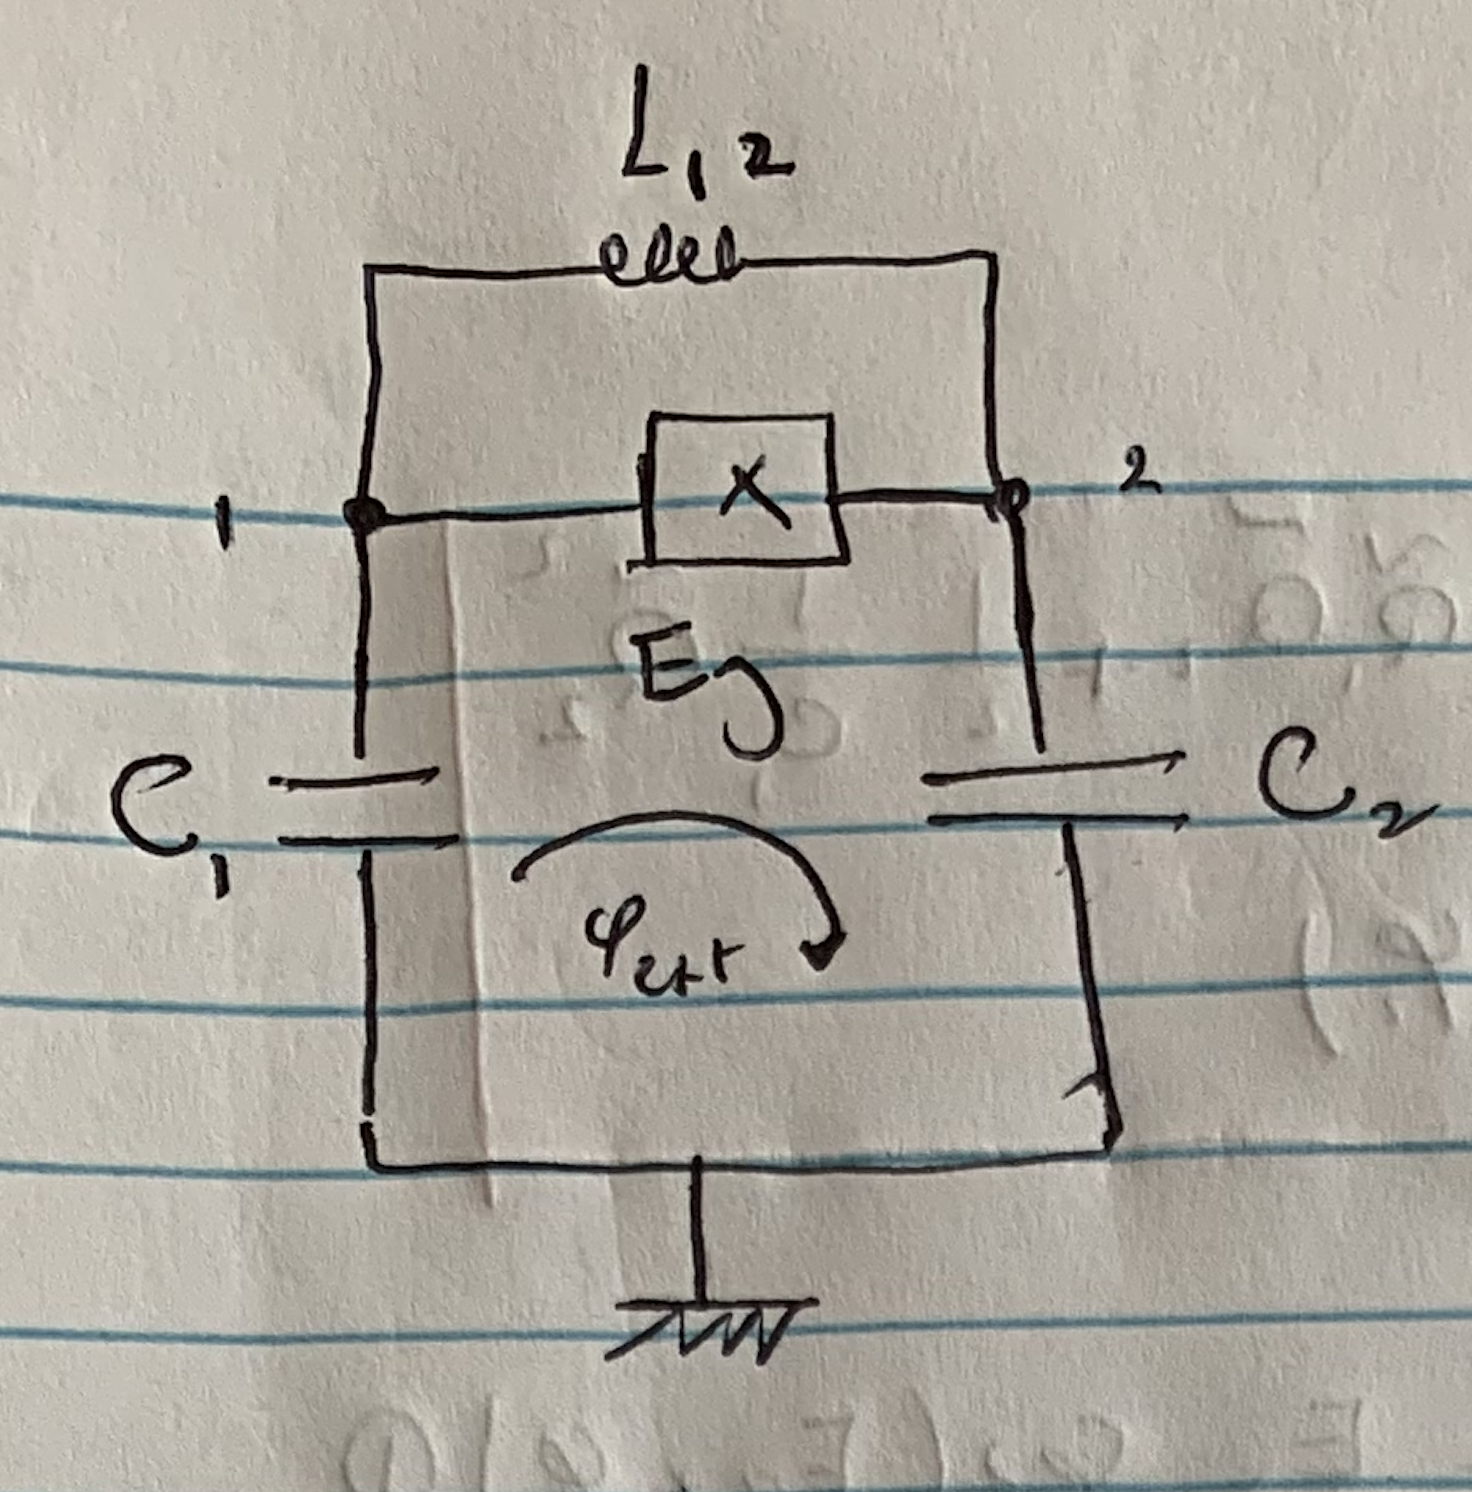 L₁₂
1
X
2
Eg
C₁
C₂
φext